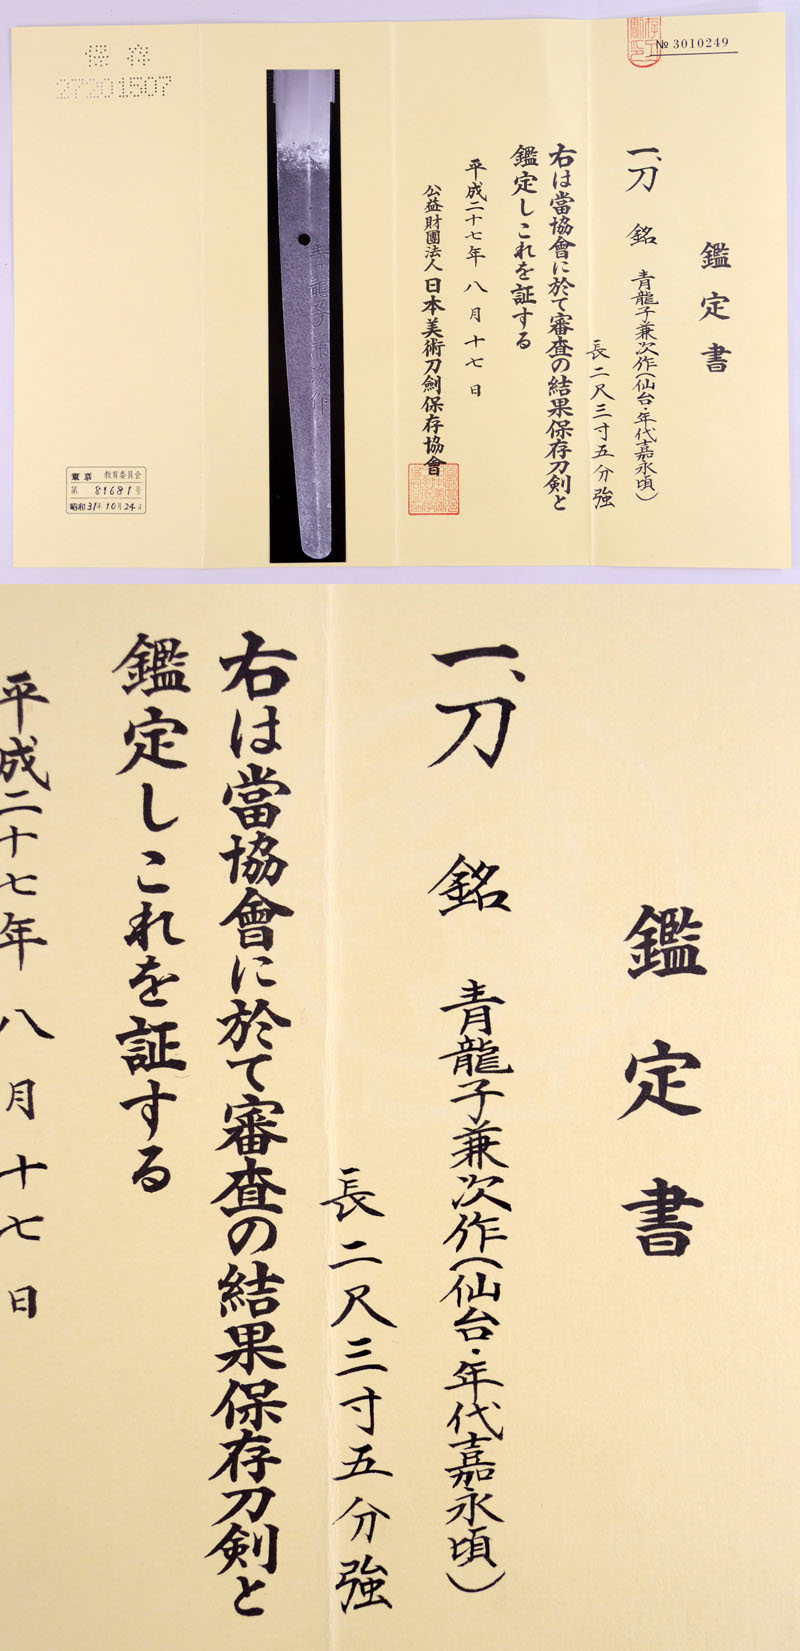 № 3010249
鑑定書
一、刀 銘 青龍子兼次作(仙台・年代嘉永頃)
長二尺三寸五分強
右は當協會に於て審査の結果保存刀剣と
鑑定しこれを証する
平成二十七年八月十七日
公益財團法人日本美術刀劍保存協會
青龍子兼次作
保存
27201507
東京 教育委員会
第 81681 号
昭和31年10月24日
鑑定書
一、刀 銘 青龍子兼次作(仙台・年代嘉永頃)
長二尺三寸五分強
右は當協會に於て審査の結果保存刀剣と
鑑定しこれを証する
平成二十七年八月十七日